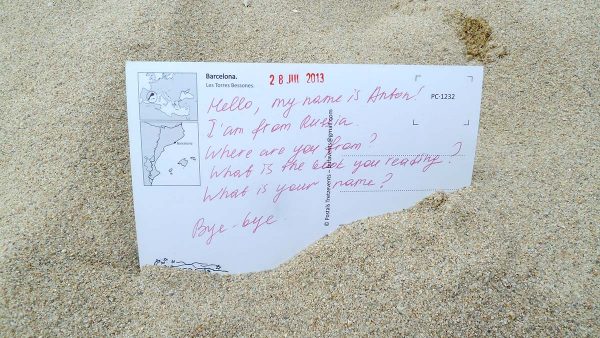 Barcelona.
Les Torres Bessones.
28 JUL 2013
PC-1232
Barcelona
Hello, my name is Anton!
I'am from Russia.
Where are you from?
What is the book you reading?
What is your name?
Bye-bye